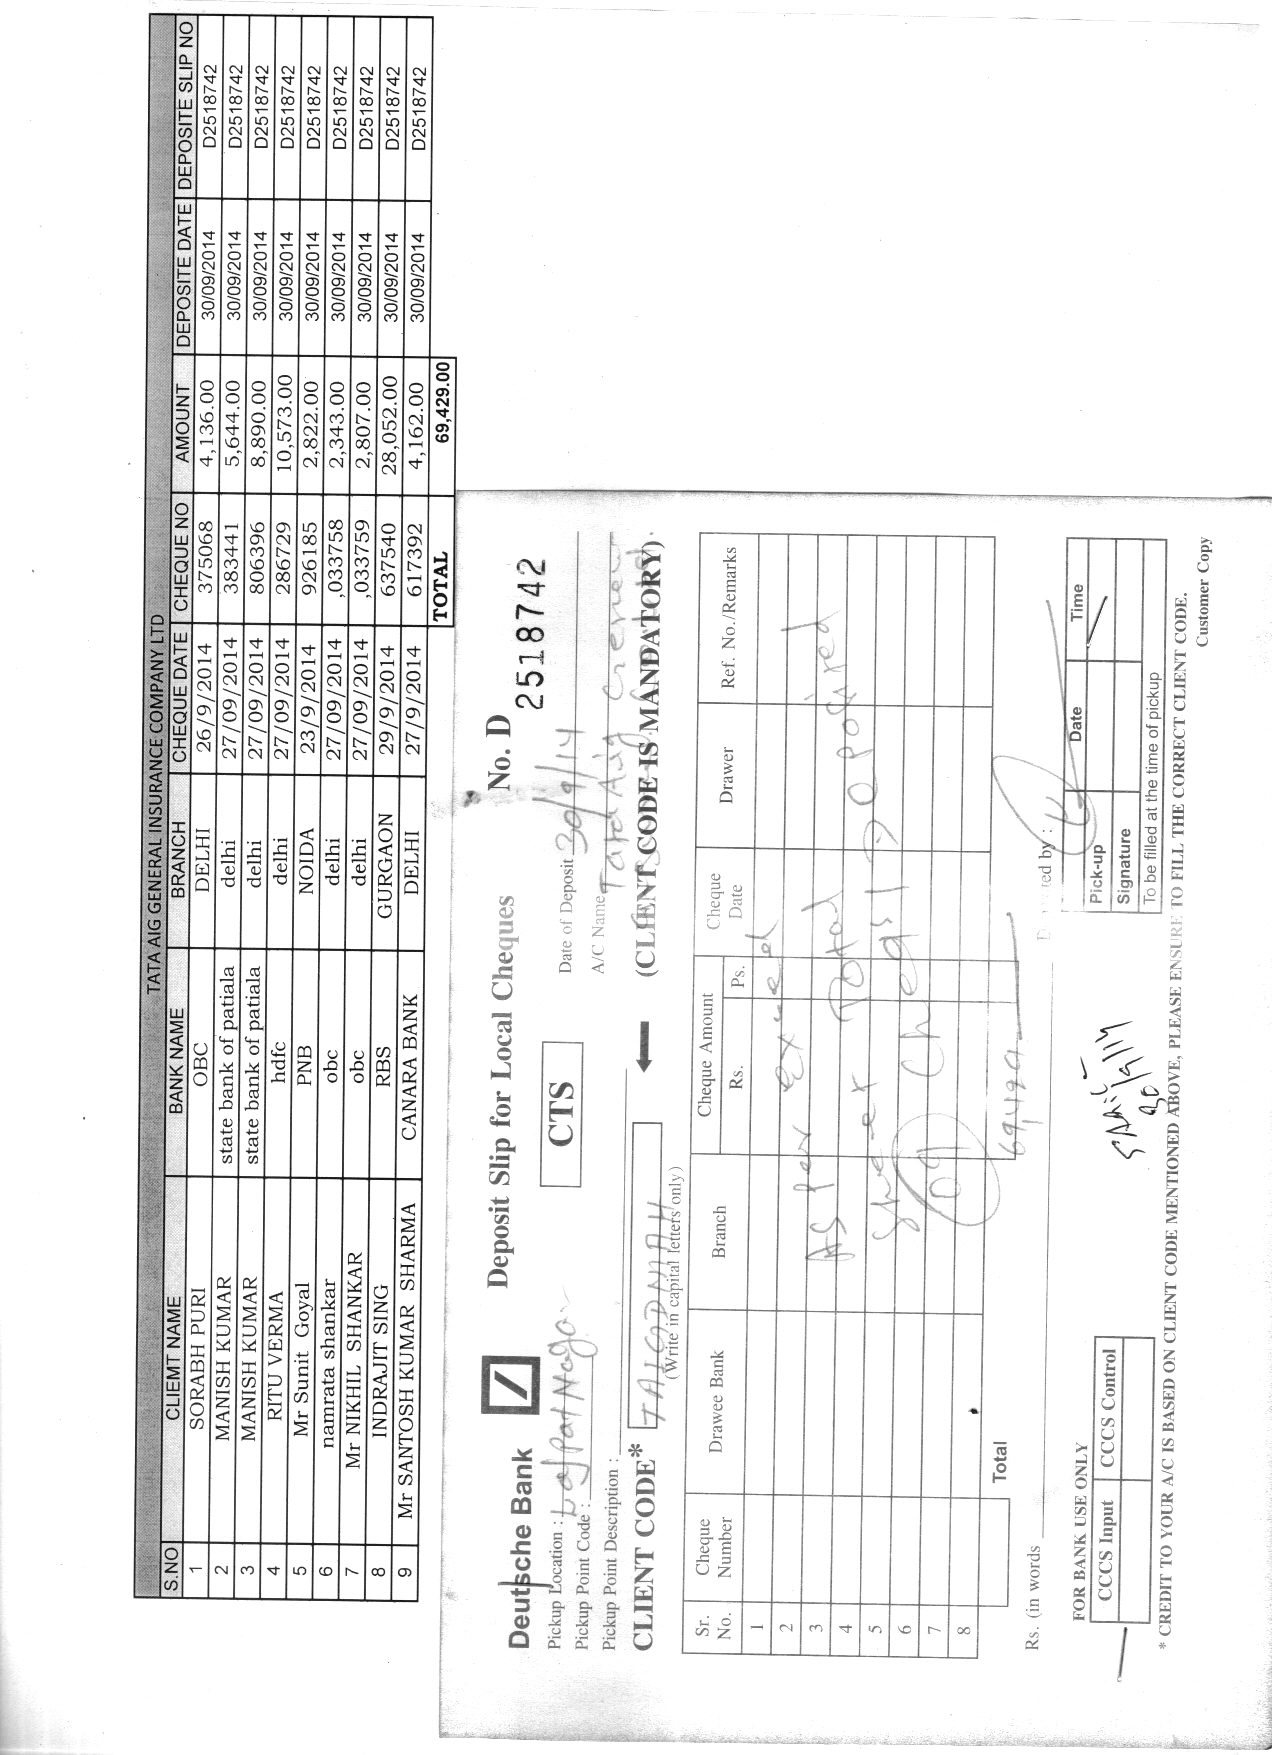 TATA AIG GENERAL INSURANCE COMPANY LTD
S.NO CLIEMT NAME BANK NAME BRANCH CHEQUE DATE CHEQUE NO AMOUNT DEPOSITE DATE DEPOSITE SLIP NO
1 SORABH PURI OBC DELHI 26/9/2014 375068 4,136.00 30/09/2014 D2518742
2 MANISH KUMAR state bank of patiala delhi 27/09/2014 383441 5,644.00 30/09/2014 D2518742
3 MANISH KUMAR state bank of patiala delhi 27/09/2014 806396 8,890.00 30/09/2014 D2518742
4 RITU VERMA hdfc delhi 27/09/2014 286729 10,573.00 30/09/2014 D2518742
5 Mr Sunit Goyal PNB NOIDA 23/9/2014 926185 2,822.00 30/09/2014 D2518742
6 namrata shankar obc delhi 27/09/2014 ,033758 2,343.00 30/09/2014 D2518742
7 Mr NIKHIL SHANKAR obc delhi 27/09/2014 ,033759 2,807.00 30/09/2014 D2518742
8 INDRAJIT SING RBS GURGAON 29/9/2014 637540 28,052.00 30/09/2014 D2518742
9 Mr SANTOSH KUMAR SHARMA CANARA BANK DELHI 27/9/2014 617392 4,162.00 30/09/2014 D2518742
TOTAL 69,429.00
Deutsche Bank Deposit Slip for Local Cheques No. D 2518742
Pickup Location : CTS Date of Deposit 30/9/14
Pickup Point Code : A/C Name Tata Aig General
Pickup Point Description :
CLIENT CODE* TAIGDMAH (CLIENT CODE IS MANDATORY).
(Write in capital letters only)
Sr. No. Cheque Number Drawee Bank Branch Cheque Amount Rs. Ps. Cheque Date Drawer Ref. No./Remarks
1
2
3
4
5
6
7
8
As per
Sheet Total Deposited
09
Total 69,429
Rs. (in words
FOR BANK USE ONLY
CCCS Input CCCS Control
Date Time
Pick-up
Signature
To be filled at the time of pickup
30/9/14
* CREDIT TO YOUR A/C IS BASED ON CLIENT CODE MENTIONED ABOVE, PLEASE ENSURE TO FILL THE CORRECT CLIENT CODE.
Customer Copy